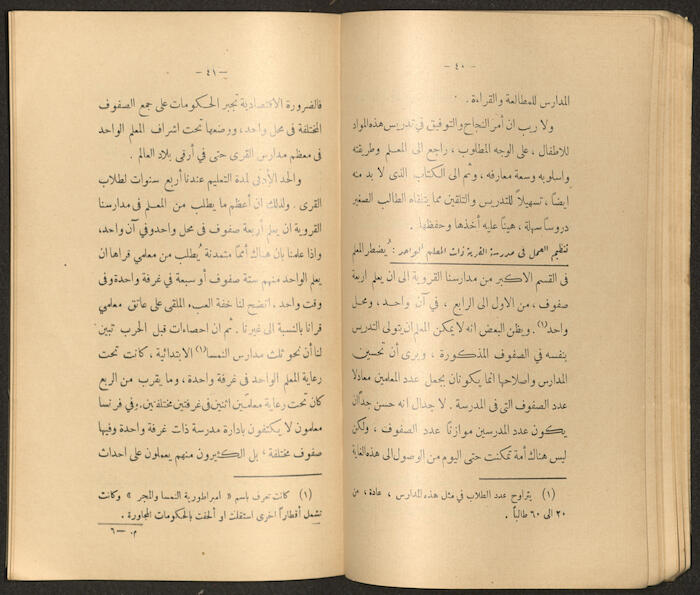 — ٤٠ —
المدارس للمطالعة والقراءة .
ولا ريب ان أمر النجاح والتوفيق في تدريس هذه المواد
للاطفال ، على الوجه المطلوب ، راجع الى المعلم وطريقته
واسلوبه وسعة معارفه ، وثم الى الكتاب الذى لا بد منه
ايضاً ، تسهيلاً للتدريس والتلقين مما يتلقاه الطالب الصغير
دروساً سهلة ، هيناً عليه أخذها وحفظها .
تنظيم العمل فى مدرسة القرية ذات المعلم الواحد : يُضطر المعلم
فى القسم الاكبر من مدارسنا القروية الى ان يعلم اربعة
صفوف ، من الاول الى الرابع ، فى آن واحد ، ومحل
واحد (١) . ويظن البعض انه لا يمكن المعلم ان يتولى التدريس
بنفسه في الصفوف المذكورة ، ويرى أن تحسين
المدارس واصلاحها انما يكونان بجعل عدد المعلمين معادلا
عدد الصفوف التى فى المدرسة . لا جدال انه حسن جداً ان
يكون عدد المدرسين موازناً عدد الصفوف ، ولكن
ليس هناك أمة تمكنت حتى اليوم من الوصول الى هذه الغاية
(١) يتراوح عدد الطلاب في مثل هذه المدارس ، عادة ، من
٢٠ الى ٦٠ طالباً .
— ٤١ —
فالضرورة الاقتصادية تجبر الحكومات على جمع الصفوف
المختلفة فى محل واحد ، ووضعها تحت اشراف المعلم الواحد
فى معظم مدارس القرى حتى في أرقى بلاد العالم .
والحد الأدنى لمدة التعليم عندنا أربع سنوات لطلاب
القرى . ولذلك ان أعظم ما يطلب من المعلم فى مدارسنا
القروية ان يعلم أربعة صفوف فى محل واحد وفي آن واحد ،
واذا علمنا بان هناك أمماً متمدنة يُطلب من معلمي قراها ان
يعلم الواحد منهم ستة صفوف أو سبعة في غرفة واحدة وفى
وقت واحد . اتضح لنا خفة العبء الملقى على عاتق معلمي
قرانا بالنسبة الى غيرنا . ثم ان احصاءات قبل الحرب تبين
لنا أن نحو ثلث مدارس النمسا (١) الابتدائية ، كانت تحت
رعاية المعلم الواحد فى غرفة واحدة ، وما يقرب من الربع
كان تحت رعاية معلمَين اثنين فى غرفتين مختلفتين . وفي فرنسا
معلمون لا يكتفون بادارة مدرسة ذات غرفة واحدة وفيها
صفوف مختلفة ، بل الكثيرون منهم يعملون على احداث
(١) كانت تعرف باسم « امبراطورية النمسا والمجر » وكانت
تشمل أقطاراً اخرى استقلت او ألحقت بالحكومات المجاورة .
م. — ٦